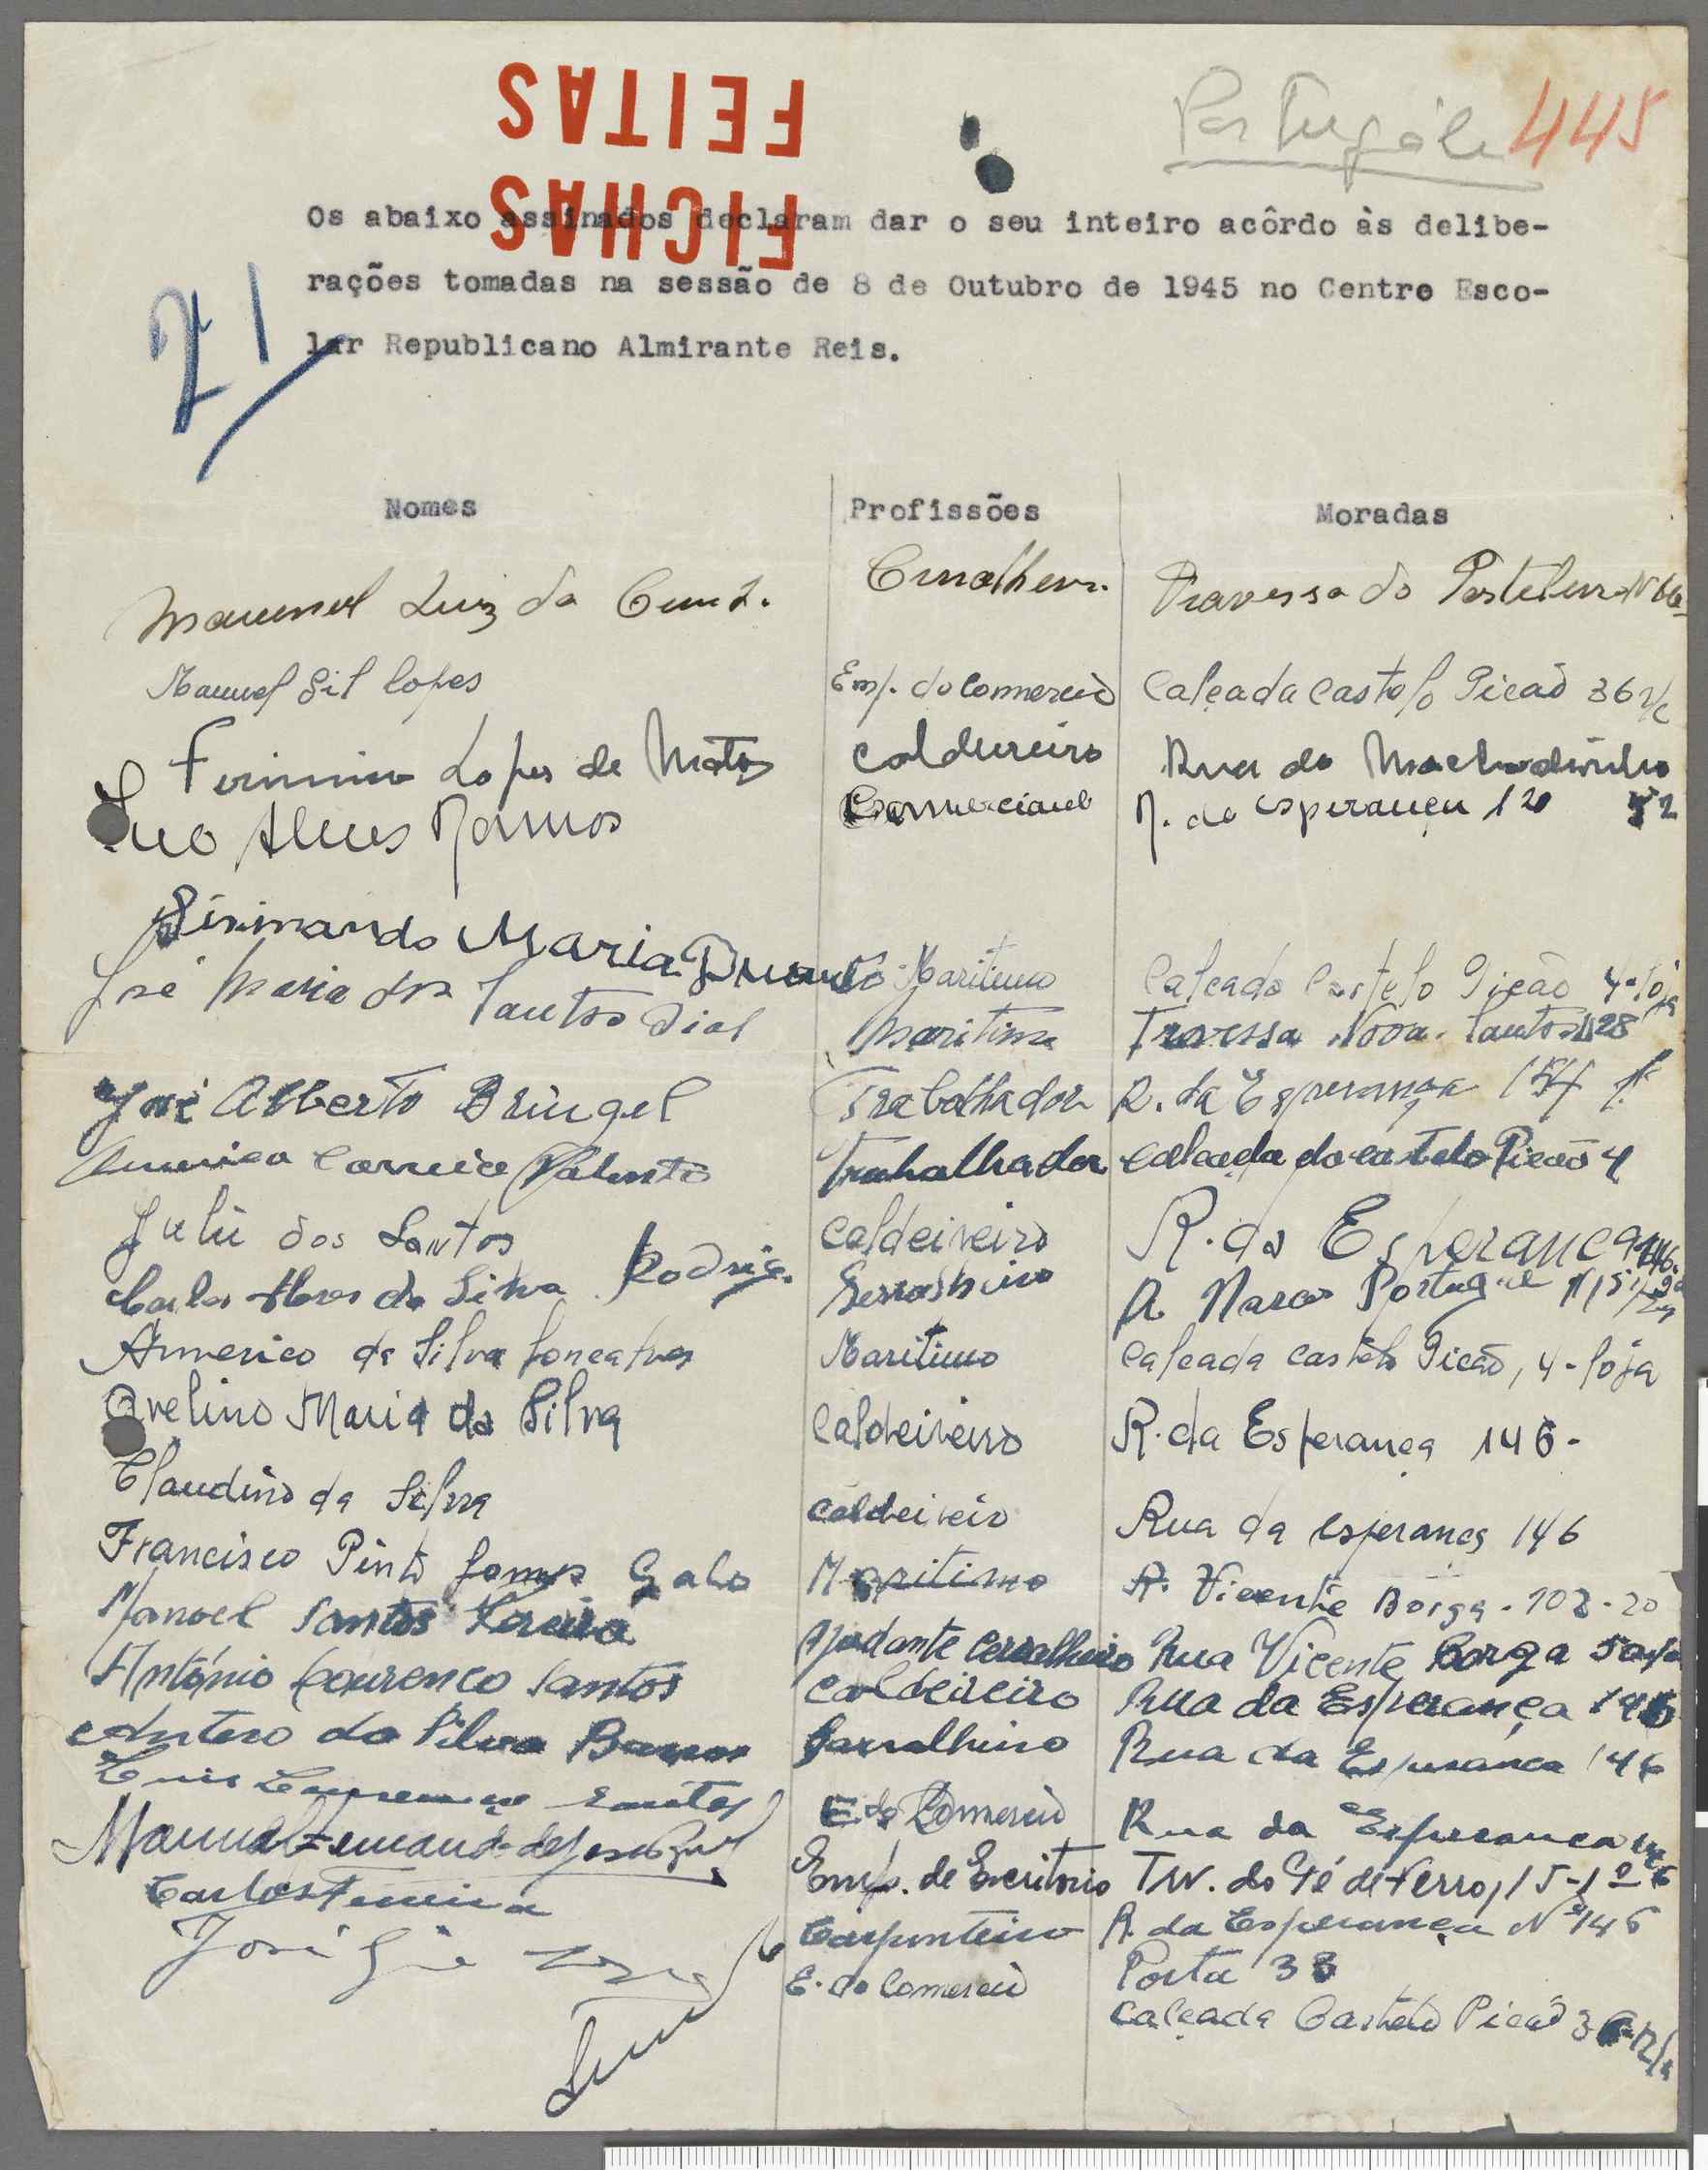 FICHAS
FEITAS
445
21
Os abaixo assinados declaram dar o seu inteiro acôrdo às delibe-
rações tomadas na sessão de 8 de Outubro de 1945 no Centro Esco-
lar Republicano Almirante Reis.
Nomes Profissões Moradas
Manuel Luiz da Travessa do
Manuel Gil Lopes Emp. do Comercio Calçada Castelo Picão 36 r/c
Firmino Lopes de Matos Caldureiro Rua do Machadinho
Alves Ramos Comerciante R. da Esperança 120
Maria Duarte Maritimo Calçada Castelo Picão 4-loja
José Maria dos Santos Dial Maritimo Travessa Nova Santos 28
José Alberto Bringel Trabalhador R. da Esperança
Americo Correia Valente Trabalhador Calçada do Castelo Picão 4
Julio dos Santos Caldeireiro R. da Esperança 146
Carlos Alves da Silva Rodrig. Serralheiro R Marcos Portugal
Americo da Silva Gonçalves Maritimo Calçada Castelo Picão, 4-loja
Avelino Maria da Silva Caldeireiro R. da Esperança 146-
Claudino da Silva Caldeireiro Rua da Esperança 146
Francisco Pinto Gomes Galo Maritimo R. Vicente Borga-102-2º
Manoel Santos Pereira Ajudante Cerralheiro Rua Vicente Borga
António Lourenço Santos Caldeireiro Rua da Esperança 146
Antero da Silva Barros Sarralheiro Rua da Esperança 146
Luis Lourenço Santos E. do Comercio Rua da Esperança 146
Manuel Fernando de Jesus Emp. de Escritorio Trv. do Pé de Ferro, 15-1º
Carlos Ferreira Carpinteiro R. da Esperança Nº 146
Porta 33
José E. do Comercio Calçada Castelo Picão